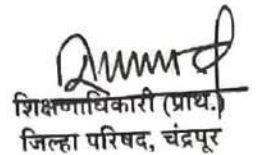 शिक्षणाधिकारी (प्राथ.)
जिल्हा परिषद, चंद्रपूर